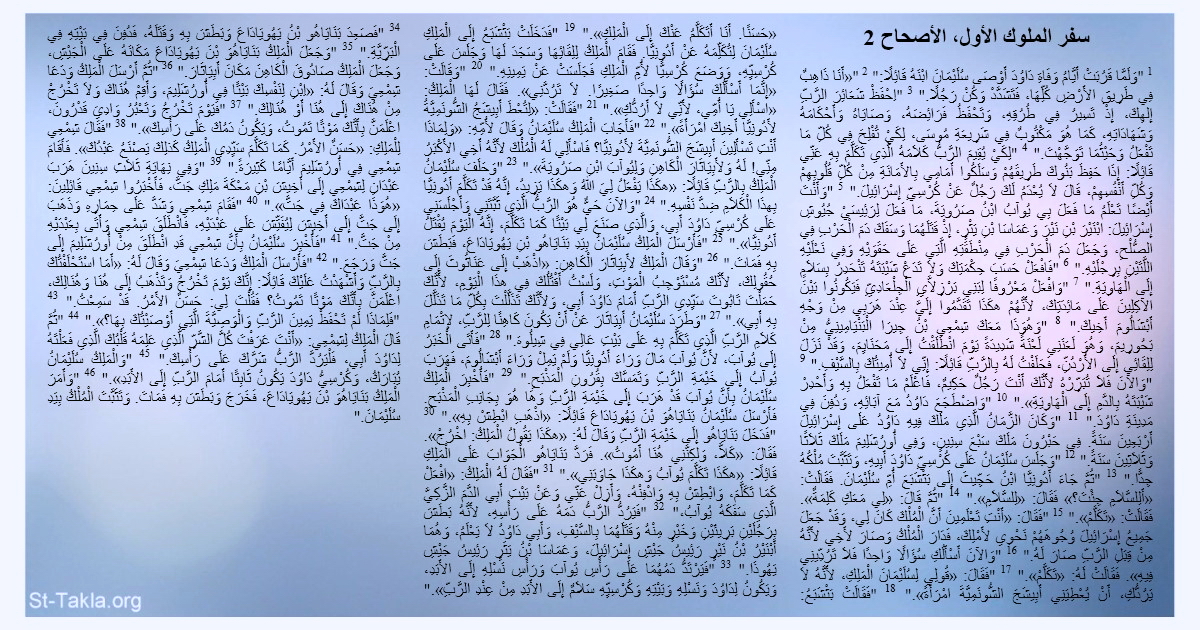 سفر الملوك الأول، الأصحاح 2
1 "وَلَمَّا قَرُبَتْ أَيَّامُ وَفَاةِ دَاوُدَ أَوْصَى سُلَيْمَانَ ابْنَهُ قَائِلًا:" 2 "«أَنَا ذَاهِبٌ
فِي طَرِيقِ الأَرْضِ كُلِّهَا، فَتَشَدَّدْ وَكُنْ رَجُلًا." 3 "اِحْفَظْ شَعَائِرَ الرَّبِّ
إِلهِكَ، إِذْ تَسِيرُ فِي طُرُقِهِ، وَتَحْفَظُ فَرَائِضَهُ، وَصَايَاهُ وَأَحْكَامَهُ
وَشَهَادَاتِهِ، كَمَا هُوَ مَكْتُوبٌ فِي شَرِيعَةِ مُوسَى، لِكَيْ تُفْلِحَ فِي كُلِّ مَا
تَفْعَلُ وَحَيْثُمَا تَوَجَّهْتَ." 4 "لِكَيْ يُقِيمَ الرَّبُّ كَلاَمَهُ الَّذِي تَكَلَّمَ بِهِ عَنِّي
قَائِلًا: إِذَا حَفِظَ بَنُوكَ طَرِيقَهُمْ وَسَلَكُوا أَمَامِي بِالأَمَانَةِ مِنْ كُلِّ قُلُوبِهِمْ
وَكُلِّ أَنْفُسِهِمْ، قَالَ لاَ يُعْدَمُ لَكَ رَجُلٌ عَنْ كُرْسِيِّ إِسْرَائِيلَ." 5 "وَأَنْتَ
أَيْضًا تَعْلَمُ مَا فَعَلَ بِي يُوآبُ ابْنُ صَرُويَةَ، مَا فَعَلَ لِرَئِيسَيْ جُيُوشِ
إِسْرَائِيلَ: ابْنَيْرَ بْنِ نَيْرَ وَعَمَاسَا بْنِ يِثْرٍ، إِذْ قَتَلَهُمَا وَسَفَكَ دَمَ الْحَرْبِ فِي
الصُّلْحِ، وَجَعَلَ دَمَ الْحَرْبِ فِي مِنْطَقَتِهِ الَّتِي عَلَى حَقَوَيْهِ وَفِي نَعْلَيْهِ
اللَّتَيْنِ بِرِجْلَيْهِ." 6 "فَافْعَلْ حَسَبَ حِكْمَتِكَ وَلاَ تَدَعْ شَيْبَتَهُ تَنْحَدِرُ بِسَلاَمٍ
إِلَى الْهَاوِيَةِ." 7 "وَافْعَلْ مَعْرُوفًا لِبَنِي بَرْزِلاَّيِ الْجِلْعَادِيِّ فَيَكُونُوا بَيْنَ
الآكِلِينَ عَلَى مَائِدَتِكَ، لأَنَّهُمْ هكَذَا تَقَدَّمُوا إِلَيَّ عِنْدَ هَرَبِي مِنْ وَجْهِ
أَبْشَالُومَ أَخِيكَ." 8 "وَهُوَذَا مَعَكَ شِمْعِي بْنُ جِيرَا الْبَنْيَامِينِيُّ مِنْ
بَحُورِيمَ، وَهُوَ لَعَنَنِي لَعْنَةً شَدِيدَةً يَوْمَ انْطَلَقْتُ إِلَى مَحَنَايِمَ، وَقَدْ نَزَلَ
لِلِقَائِي إِلَى الأُرْدُنِّ، فَحَلَفْتُ لَهُ بِالرَّبِّ قَائِلًا: إِنِّي لاَ أُمِيتُكَ بِالسَّيْفِ." 9
"وَالآنَ فَلاَ تُبَرِّرْهُ لأَنَّكَ أَنْتَ رَجُلٌ حَكِيمٌ، فَاعْلَمْ مَا تَفْعَلُ بِهِ وَأَحْدِرْ
شَيْبَتَهُ بِالدَّمِ إِلَى الْهَاوِيَةِ»." 10 "وَاضْطَجَعَ دَاوُدُ مَعَ آبَائِهِ، وَدُفِنَ فِي
مَدِينَةِ دَاوُدَ." 11 "وَكَانَ الزَّمَانُ الَّذِي مَلَكَ فِيهِ دَاوُدُ عَلَى إِسْرَائِيلَ
أَرْبَعِينَ سَنَةً. فِي حَبْرُونَ مَلَكَ سَبْعَ سِنِينَ، وَفِي أُورُشَلِيمَ مَلَكَ ثَلاَثًا
وَثَلاَثِينَ سَنَةً." 12 "وَجَلَسَ سُلَيْمَانُ عَلَى كُرْسِيِّ دَاوُدَ أَبِيهِ، وَتَثَبَّتَ مُلْكُهُ
جِدًّا." 13 "ثُمَّ جَاءَ أَدُونِيَّا ابْنُ حَجِّيثَ إِلَى بَثْشَبَعَ أُمِّ سُلَيْمَانَ. فَقَالَتْ:
«أَلِلسَّلاَمِ جِئْتَ؟» فَقَالَ: «لِلسَّلاَمِ»." 14 "ثُمَّ قَالَ: «لِي مَعَكِ كَلِمَةٌ».
فَقَالَتْ: «تَكَلَّمْ»." 15 "فَقَالَ: «أَنْتِ تَعْلَمِينَ أَنَّ الْمُلْكَ كَانَ لِي، وَقَدْ جَعَلَ
جَمِيعُ إِسْرَائِيلَ وُجُوهَهُمْ نَحْوِي لأَمْلِكَ، فَدَارَ الْمُلْكُ وَصَارَ لأَخِي لأَنَّهُ
مِنْ قِبَلِ الرَّبِّ صَارَ لَهُ." 16 "وَالآنَ أَسْأَلُكِ سُؤَالًا وَاحِدًا فَلاَ تَرُدِّينِي
فِيهِ». فَقَالَتْ لَهُ: «تَكَلَّمْ»." 17 "فَقَالَ: «قُولِي لِسُلَيْمَانَ الْمَلِكِ، لأَنَّهُ لاَ
يَرُدُّكِ، أَنْ يُعْطِيَنِي أَبِيشَجَ الشُّونَمِيَّةَ امْرَأَةً»." 18 "فَقَالَتْ بَثْشَبَعُ:
«حَسَنًا. أَنَا أَتَكَلَّمُ عَنْكَ إِلَى الْمَلِكِ»." 19 "فَدَخَلَتْ بَثْشَبَعُ إِلَى الْمَلِكِ
سُلَيْمَانَ لِتُكَلِّمَهُ عَنْ أَدُونِيَّا. فَقَامَ الْمَلِكُ لِلِقَائِهَا وَسَجَدَ لَهَا وَجَلَسَ عَلَى
كُرْسِيِّهِ، وَوَضَعَ كُرْسِيًّا لأُمِّ الْمَلِكِ فَجَلَسَتْ عَنْ يَمِينِهِ." 20 "وَقَالَتْ:
«إِنَّمَا أَسْأَلُكَ سُؤَالًا وَاحِدًا صَغِيرًا. لاَ تَرُدَّنِي». فَقَالَ لَهَا الْمَلِكُ:
«اسْأَلِي يَا أُمِّي، لأَنِّي لاَ أَرُدُّكِ»." 21 "فَقَالَتْ: «لِتُعْطَ أَبِيشَجُ الشُّونَمِيَّةُ
لأَدُونِيَّا أَخِيكَ امْرَأَةً»." 22 "فَأَجَابَ الْمَلِكُ سُلَيْمَانُ وَقَالَ لأُمِّهِ: «وَلِمَاذَا
أَنْتِ تَسْأَلِينَ أَبِيشَجَ الشُّونَمِيَّةَ لأَدُونِيَّا؟ فَاسْأَلِي لَهُ الْمُلْكَ لأَنَّهُ أَخِي الأَكْبَرُ
مِنِّي! لَهُ وَلأَبِيَاثَارَ الْكَاهِنِ وَلِيُوآبَ ابْنِ صَرُويَةَ»." 23 "وَحَلَفَ سُلَيْمَانُ
الْمَلِكُ بِالرَّبِّ قَائِلًا: «هكَذَا يَفْعَلُ لِيَ اللهُ وَهكَذَا يَزِيدُ، إِنَّهُ قَدْ تَكَلَّمَ أَدُونِيَّا
بِهذَا الْكَلاَمِ ضِدَّ نَفْسِهِ." 24 "وَالآنَ حَيٌّ هُوَ الرَّبُّ الَّذِي ثَبَّتَنِي وَأَجْلَسَنِي
عَلَى كُرْسِيِّ دَاوُدَ أَبِي، وَالَّذِي صَنَعَ لِي بَيْتًا كَمَا تَكَلَّمَ، إِنَّهُ الْيَوْمَ يُقْتَلُ
أَدُونِيَّا»." 25 "فَأَرْسَلَ الْمَلِكُ سُلَيْمَانُ بِيَدِ بَنَايَاهُو بْنِ يَهُويَادَاعَ، فَبَطَشَ
بِهِ فَمَاتَ." 26 "وَقَالَ الْمَلِكُ لأَبِيَاثَارَ الْكَاهِنِ: «اذْهَبْ إِلَى عَنَاثُوثَ إِلَى
حُقُولِكَ، لأَنَّكَ مُسْتَوْجِبُ الْمَوْتِ، وَلَسْتُ أَقْتُلُكَ فِي هذَا الْيَوْمِ، لأَنَّكَ
حَمَلْتَ تَابُوتَ سَيِّدِي الرَّبِّ أَمَامَ دَاوُدَ أَبِي، وَلأَنَّكَ تَذَلَّلْتَ بِكُلِّ مَا تَذَلَّلَ
بِهِ أَبِي»." 27 "وَطَرَدَ سُلَيْمَانُ أَبِيَاثَارَ عَنْ أَنْ يَكُونَ كَاهِنًا لِلرَّبِّ، لإِتْمَامِ
كَلاَمِ الرَّبِّ الَّذِي تَكَلَّمَ بِهِ عَلَى بَيْتِ عَالِي فِي شِيلُوهَ." 28 "فَأَتَى الْخَبَرُ
إِلَى يُوآبَ، لأَنَّ يُوآبَ مَالَ وَرَاءَ أَدُونِيَّا وَلَمْ يَمِلْ وَرَاءَ أَبْشَالُومَ، فَهَرَبَ
يُوآبُ إِلَى خَيْمَةِ الرَّبِّ وَتَمَسَّكَ بِقُرُونِ الْمَذْبَحِ." 29 "فَأُخْبِرَ الْمَلِكُ
سُلَيْمَانُ بِأَنَّ يُوآبَ قَدْ هَرَبَ إِلَى خَيْمَةِ الرَّبِّ وَهَا هُوَ بِجَانِبِ الْمَذْبَحِ.
فَأَرْسَلَ سُلَيْمَانُ بَنَايَاهُوَ بْنَ يَهُويَادَاعَ قَائِلًا: «اذْهَبِ ابْطُشْ بِهِ»." 30
"فَدَخَلَ بَنَايَاهُو إِلَى خَيْمَةِ الرَّبِّ وَقَالَ لَهُ: «هكَذَا يَقُولُ الْمَلِكُ: اخْرُجْ».
فَقَالَ: «كَلاَّ، وَلكِنَّنِي هُنَا أَمُوتُ». فَرَدَّ بَنَايَاهُو الْجَوَابَ عَلَى الْمَلِكِ
قَائِلًا: «هكَذَا تَكَلَّمَ يُوآبُ وَهكَذَا جَاوَبَنِي»." 31 "فَقَالَ لَهُ الْمَلِكُ: «افْعَلْ
كَمَا تَكَلَّمَ، وَابْطِشْ بِهِ وَادْفِنْهُ، وَأَزِلْ عَنِّي وَعَنْ بَيْتِ أَبِي الدَّمَ الزَّكِيَّ
الَّذِي سَفَكَهُ يُوآبُ." 32 "فَيَرُدُّ الرَّبُّ دَمَهُ عَلَى رَأْسِهِ، لأَنَّهُ بَطَشَ
بِرَجُلَيْنِ بَرِيئَيْنِ وَخَيْرٍ مِنْهُ وَقَتَلَهُمَا بِالسَّيْفِ، وَأَبِي دَاوُدُ لاَ يَعْلَمُ، وَهُمَا
أَبْنَيْرُ بْنُ نَيْرَ رَئِيسُ جَيْشِ إِسْرَائِيلَ، وَعَمَاسَا بْنُ يَثَرٍ رَئِيسُ جَيْشِ
يَهُوذَا." 33 "فَيَرْتَدُّ دَمُهُمَا عَلَى رَأْسِ يُوآبَ وَرَأْسِ نَسْلِهِ إِلَى الأَبَدِ،
وَيَكُونُ لِدَاوُدَ وَنَسْلِهِ وَبَيْتِهِ وَكُرْسِيِّهِ سَلاَمٌ إِلَى الأَبَدِ مِنْ عِنْدِ الرَّبِّ»."
34 "فَصَعِدَ بَنَايَاهُو بْنُ يَهُويَادَاعَ وَبَطَشَ بِهِ وَقَتَلَهُ، فَدُفِنَ فِي بَيْتِهِ فِي
الْبَرِّيَّةِ." 35 "وَجَعَلَ الْمَلِكُ بَنَايَاهُوَ بْنَ يَهُويَادَاعَ مَكَانَهُ عَلَى الْجَيْشِ،
وَجَعَلَ الْمَلِكُ صَادُوقَ الْكَاهِنَ مَكَانَ أَبِيَاثَارَ." 36 "ثُمَّ أَرْسَلَ الْمَلِكُ وَدَعَا
شِمْعِيَ وَقَالَ لَهُ: «اِبْنِ لِنَفْسِكَ بَيْتًا فِي أُورُشَلِيمَ، وَأَقِمْ هُنَاكَ وَلاَ تَخْرُجْ
مِنْ هُنَاكَ إِلَى هُنَا أَوْ هُنَالِكَ." 37 "فَيَوْمَ تَخْرُجُ وَتَعْبُرُ وَادِيَ قَدْرُونَ،
اعْلَمَنَّ بِأَنَّكَ مَوْتًا تَمُوتُ، وَيَكُونُ دَمُكَ عَلَى رَأْسِكَ»." 38 "فَقَالَ شِمْعِي
لِلْمَلِكِ: «حَسَنٌ الأَمْرُ. كَمَا تَكَلَّمَ سَيِّدِي الْمَلِكُ كَذلِكَ يَصْنَعُ عَبْدُكَ». فَأَقَامَ
شِمْعِي فِي أُورُشَلِيمَ أَيَّامًا كَثِيرَةً." 39 "وَفِي نِهَايَةِ ثَلاَثِ سِنِينَ هَرَبَ
عَبْدَانِ لِشِمْعِي إِلَى أَخِيشَ بْنِ مَعْكَةَ مَلِكِ جَتَّ، فَأَخْبَرُوا شِمْعِي قَائِلِينَ:
«هُوَذَا عَبْدَاكَ فِي جَتَّ»." 40 "فَقَامَ شِمْعِي وَشَدَّ عَلَى حِمَارِهِ وَذَهَبَ
إِلَى جَتَّ إِلَى أَخِيشَ لِيُفَتِّشَ عَلَى عَبْدَيْهِ، فَانْطَلَقَ شِمْعِي وَأَتَى بِعَبْدَيْهِ
مِنْ جَتَّ." 41 "فَأُخْبِرَ سُلَيْمَانُ بِأَنَّ شِمْعِي قَدِ انْطَلَقَ مِنْ أُورُشَلِيمَ إِلَى
جَتَّ وَرَجَعَ." 42 "فَأَرْسَلَ الْمَلِكُ وَدَعَا شِمْعِيَ وَقَالَ لَهُ: «أَمَا اسْتَحْلَفْتُكَ
بِالرَّبِّ وَأَشْهَدْتُ عَلَيْكَ قَائِلًا: إِنَّكَ يَوْمَ تَخْرُجُ وَتَذْهَبُ إِلَى هُنَا وَهُنَالِكَ،
اعْلَمَنَّ بِأَنَّكَ مَوْتًا تَمُوتُ؟ فَقُلْتَ لِي: حَسَنٌ الأَمْرُ. قَدْ سَمِعْتُ." 43
"فَلِمَاذَا لَمْ تَحْفَظْ يَمِينَ الرَّبِّ وَالْوَصِيَّةَ الَّتِي أَوْصَيْتُكَ بِهَا؟»." 44 "ثُمَّ
قَالَ الْمَلِكُ لِشِمْعِي: «أَنْتَ عَرَفْتَ كُلَّ الشَّرِّ الَّذِي عَلِمَهُ قَلْبُكَ الَّذِي فَعَلْتَهُ
لِدَاوُدَ أَبِي، فَلْيَرُدَّ الرَّبُّ شَرَّكَ عَلَى رَأْسِكَ." 45 "وَالْمَلِكُ سُلَيْمَانُ
يُبَارَكُ، وَكُرْسِيُّ دَاوُدَ يَكُونُ ثَابِتًا أَمَامَ الرَّبِّ إِلَى الأَبَدِ»." 46 "وَأَمَرَ
الْمَلِكُ بَنَايَاهُوَ بْنَ يَهُويَادَاعَ، فَخَرَجَ وَبَطَشَ بِهِ فَمَاتَ. وَتَثَبَّتَ الْمُلْكُ بِيَدِ
سُلَيْمَانَ."
St-Takla.org